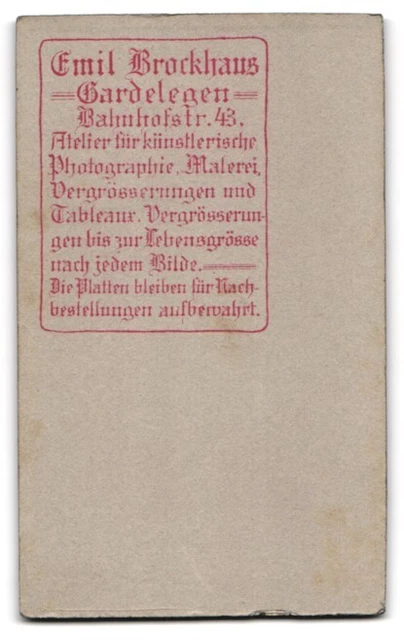 Emil Brockhaus
Gardelegen
Bahnhofstr. 43.
Atelier für künstlerische
Photographie, Malerei,
Vergrösserungen und
Tableaux. Vergrösserun-
gen bis zur Lebensgrösse
nach jedem Bilde.
Die Platten bleiben für Nach-
bestellungen aufbewahrt.